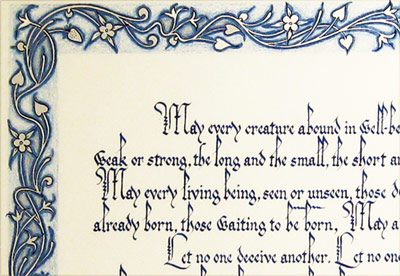 May every creature abound in well-be
Weak or strong, the long and the small, the short a
May every living being, seen or unseen, those d
already born, those waiting to be born, May a
Let no one deceive another. Let no o